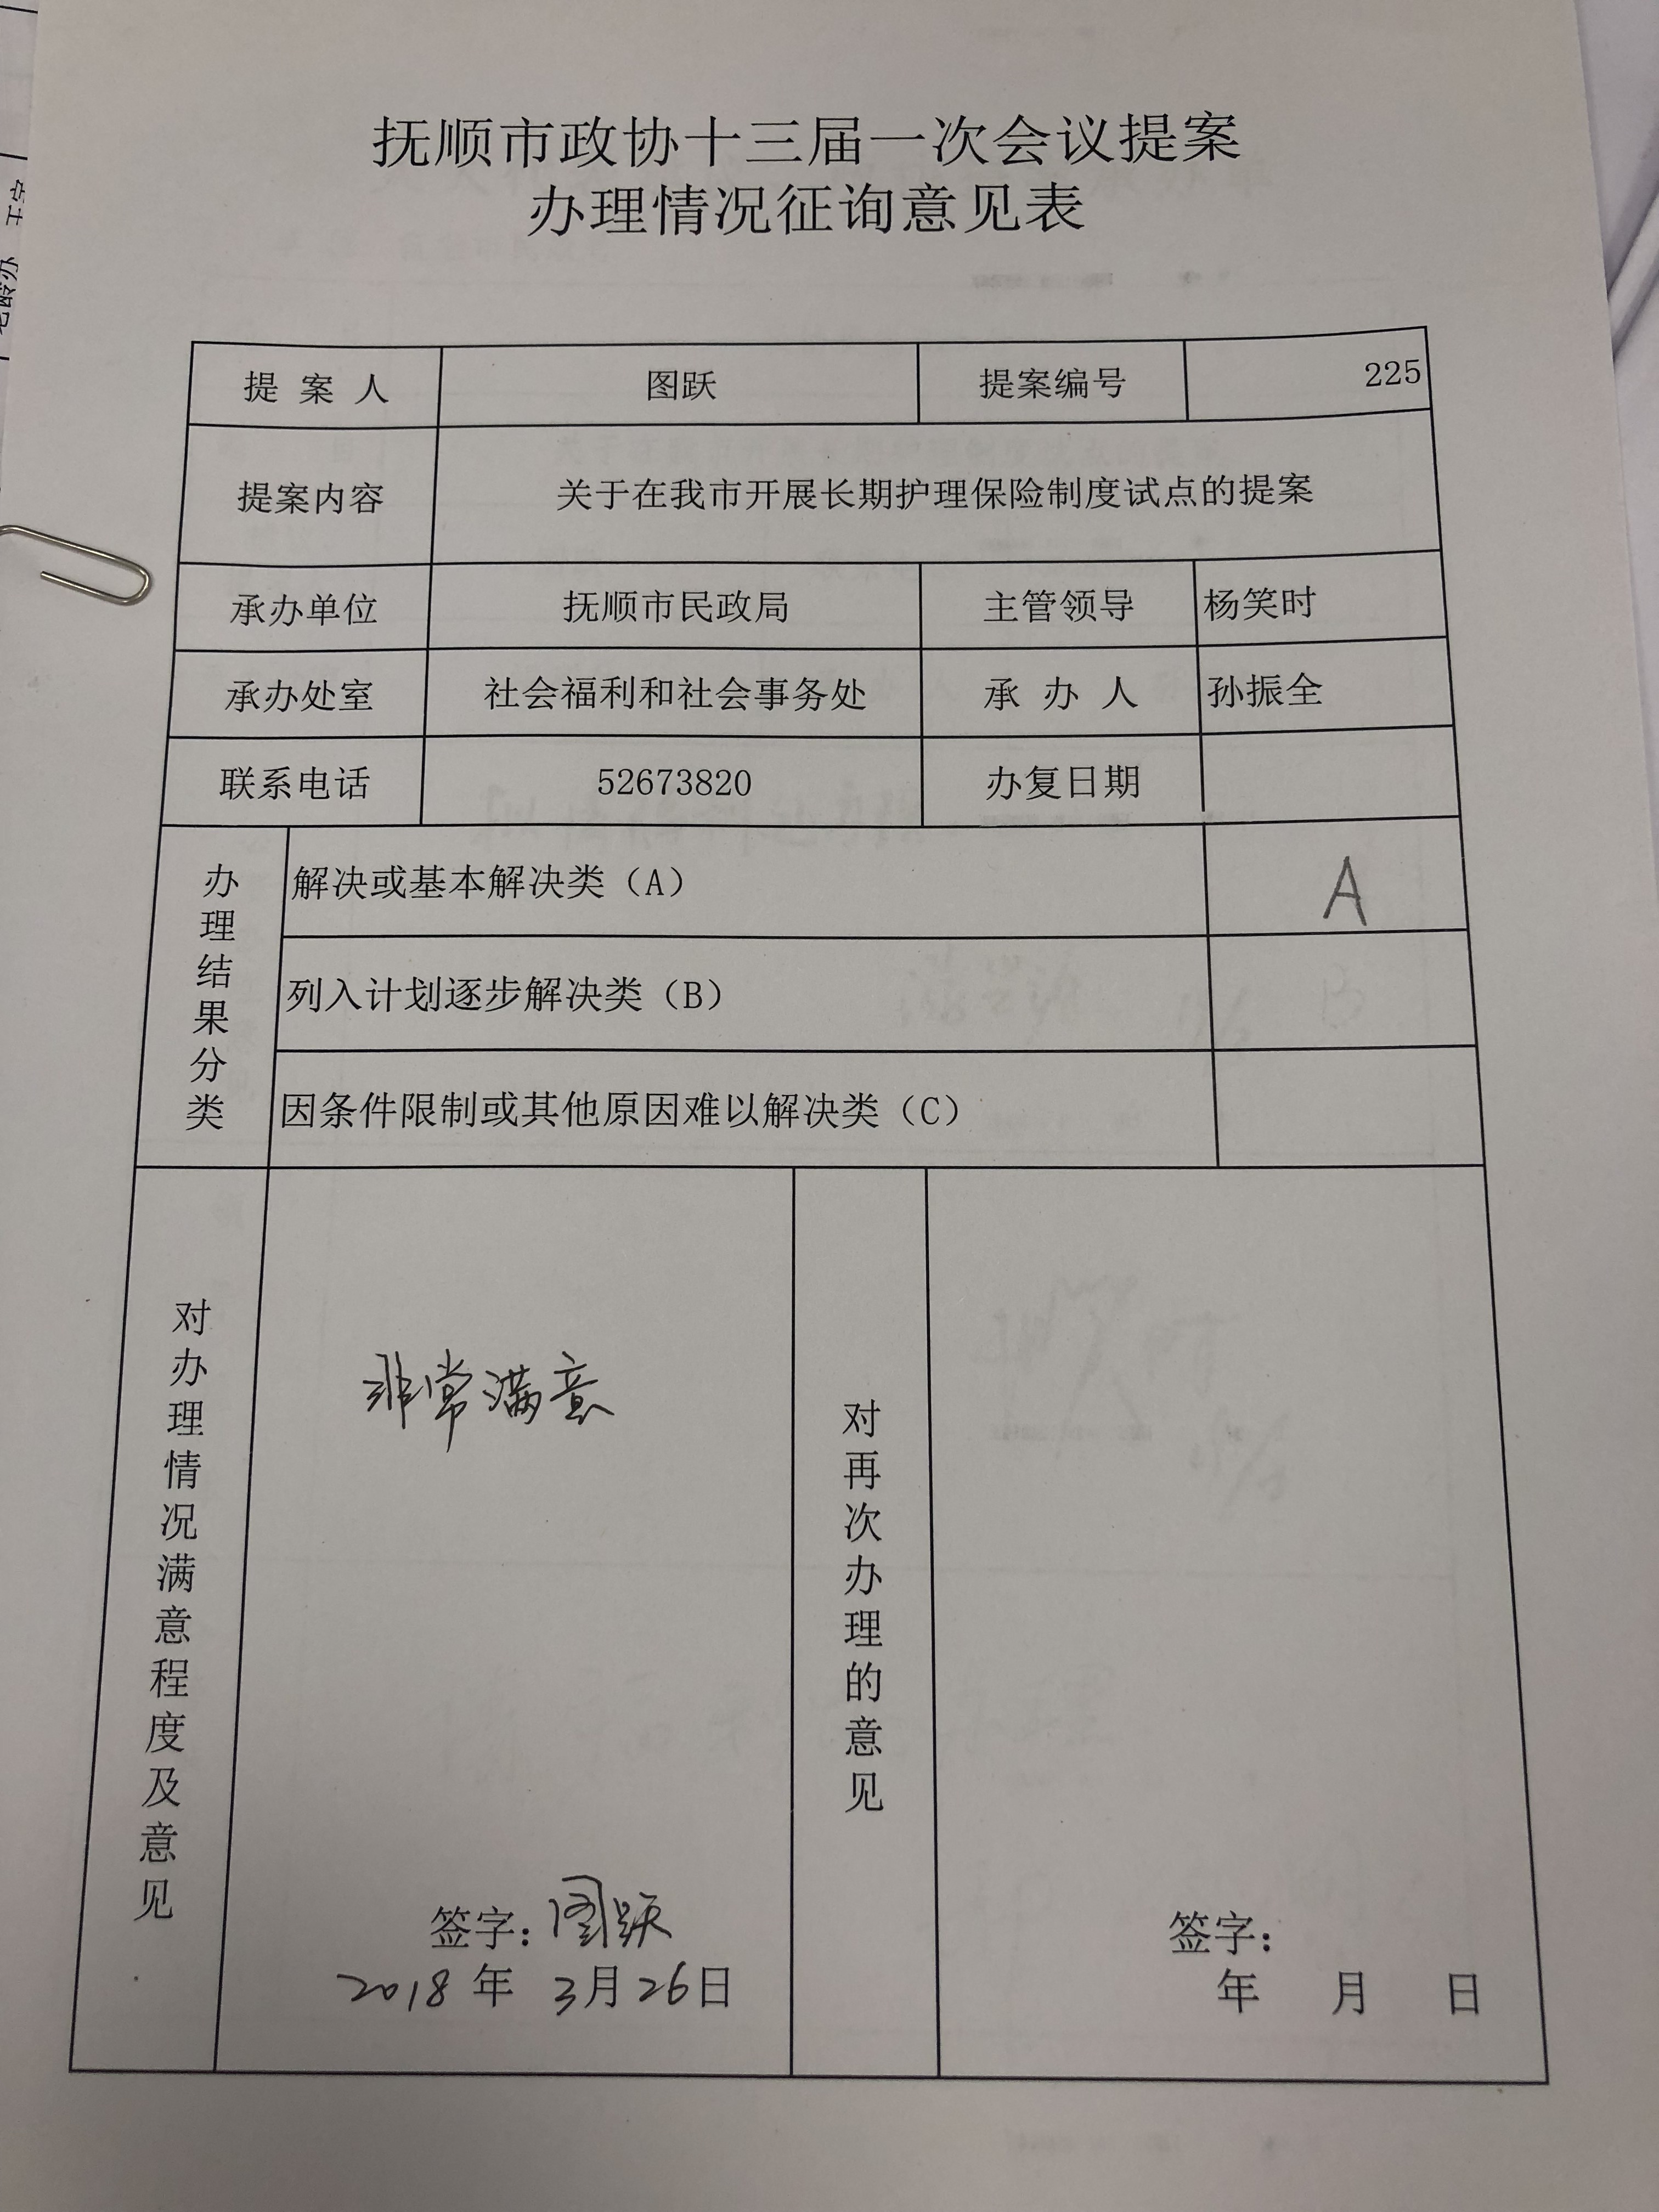 抚顺市政协十三届一次会议提案
办理情况征询意见表
提 案 人 图跃 提案编号 225
提案内容 关于在我市开展长期护理保险制度试点的提案
承办单位 抚顺市民政局 主管领导 杨笑时
承办处室 社会福利和社会事务处 承 办 人 孙振全
联系电话 52673820 办复日期
办理结果分类
解决或基本解决类（A） A
列入计划逐步解决类（B）
因条件限制或其他原因难以解决类（C）
对办理情况满意程度及意见
非常满意
签字：图跃
2018 年 3月26日
对再次办理的意见
签字：
年 月 日